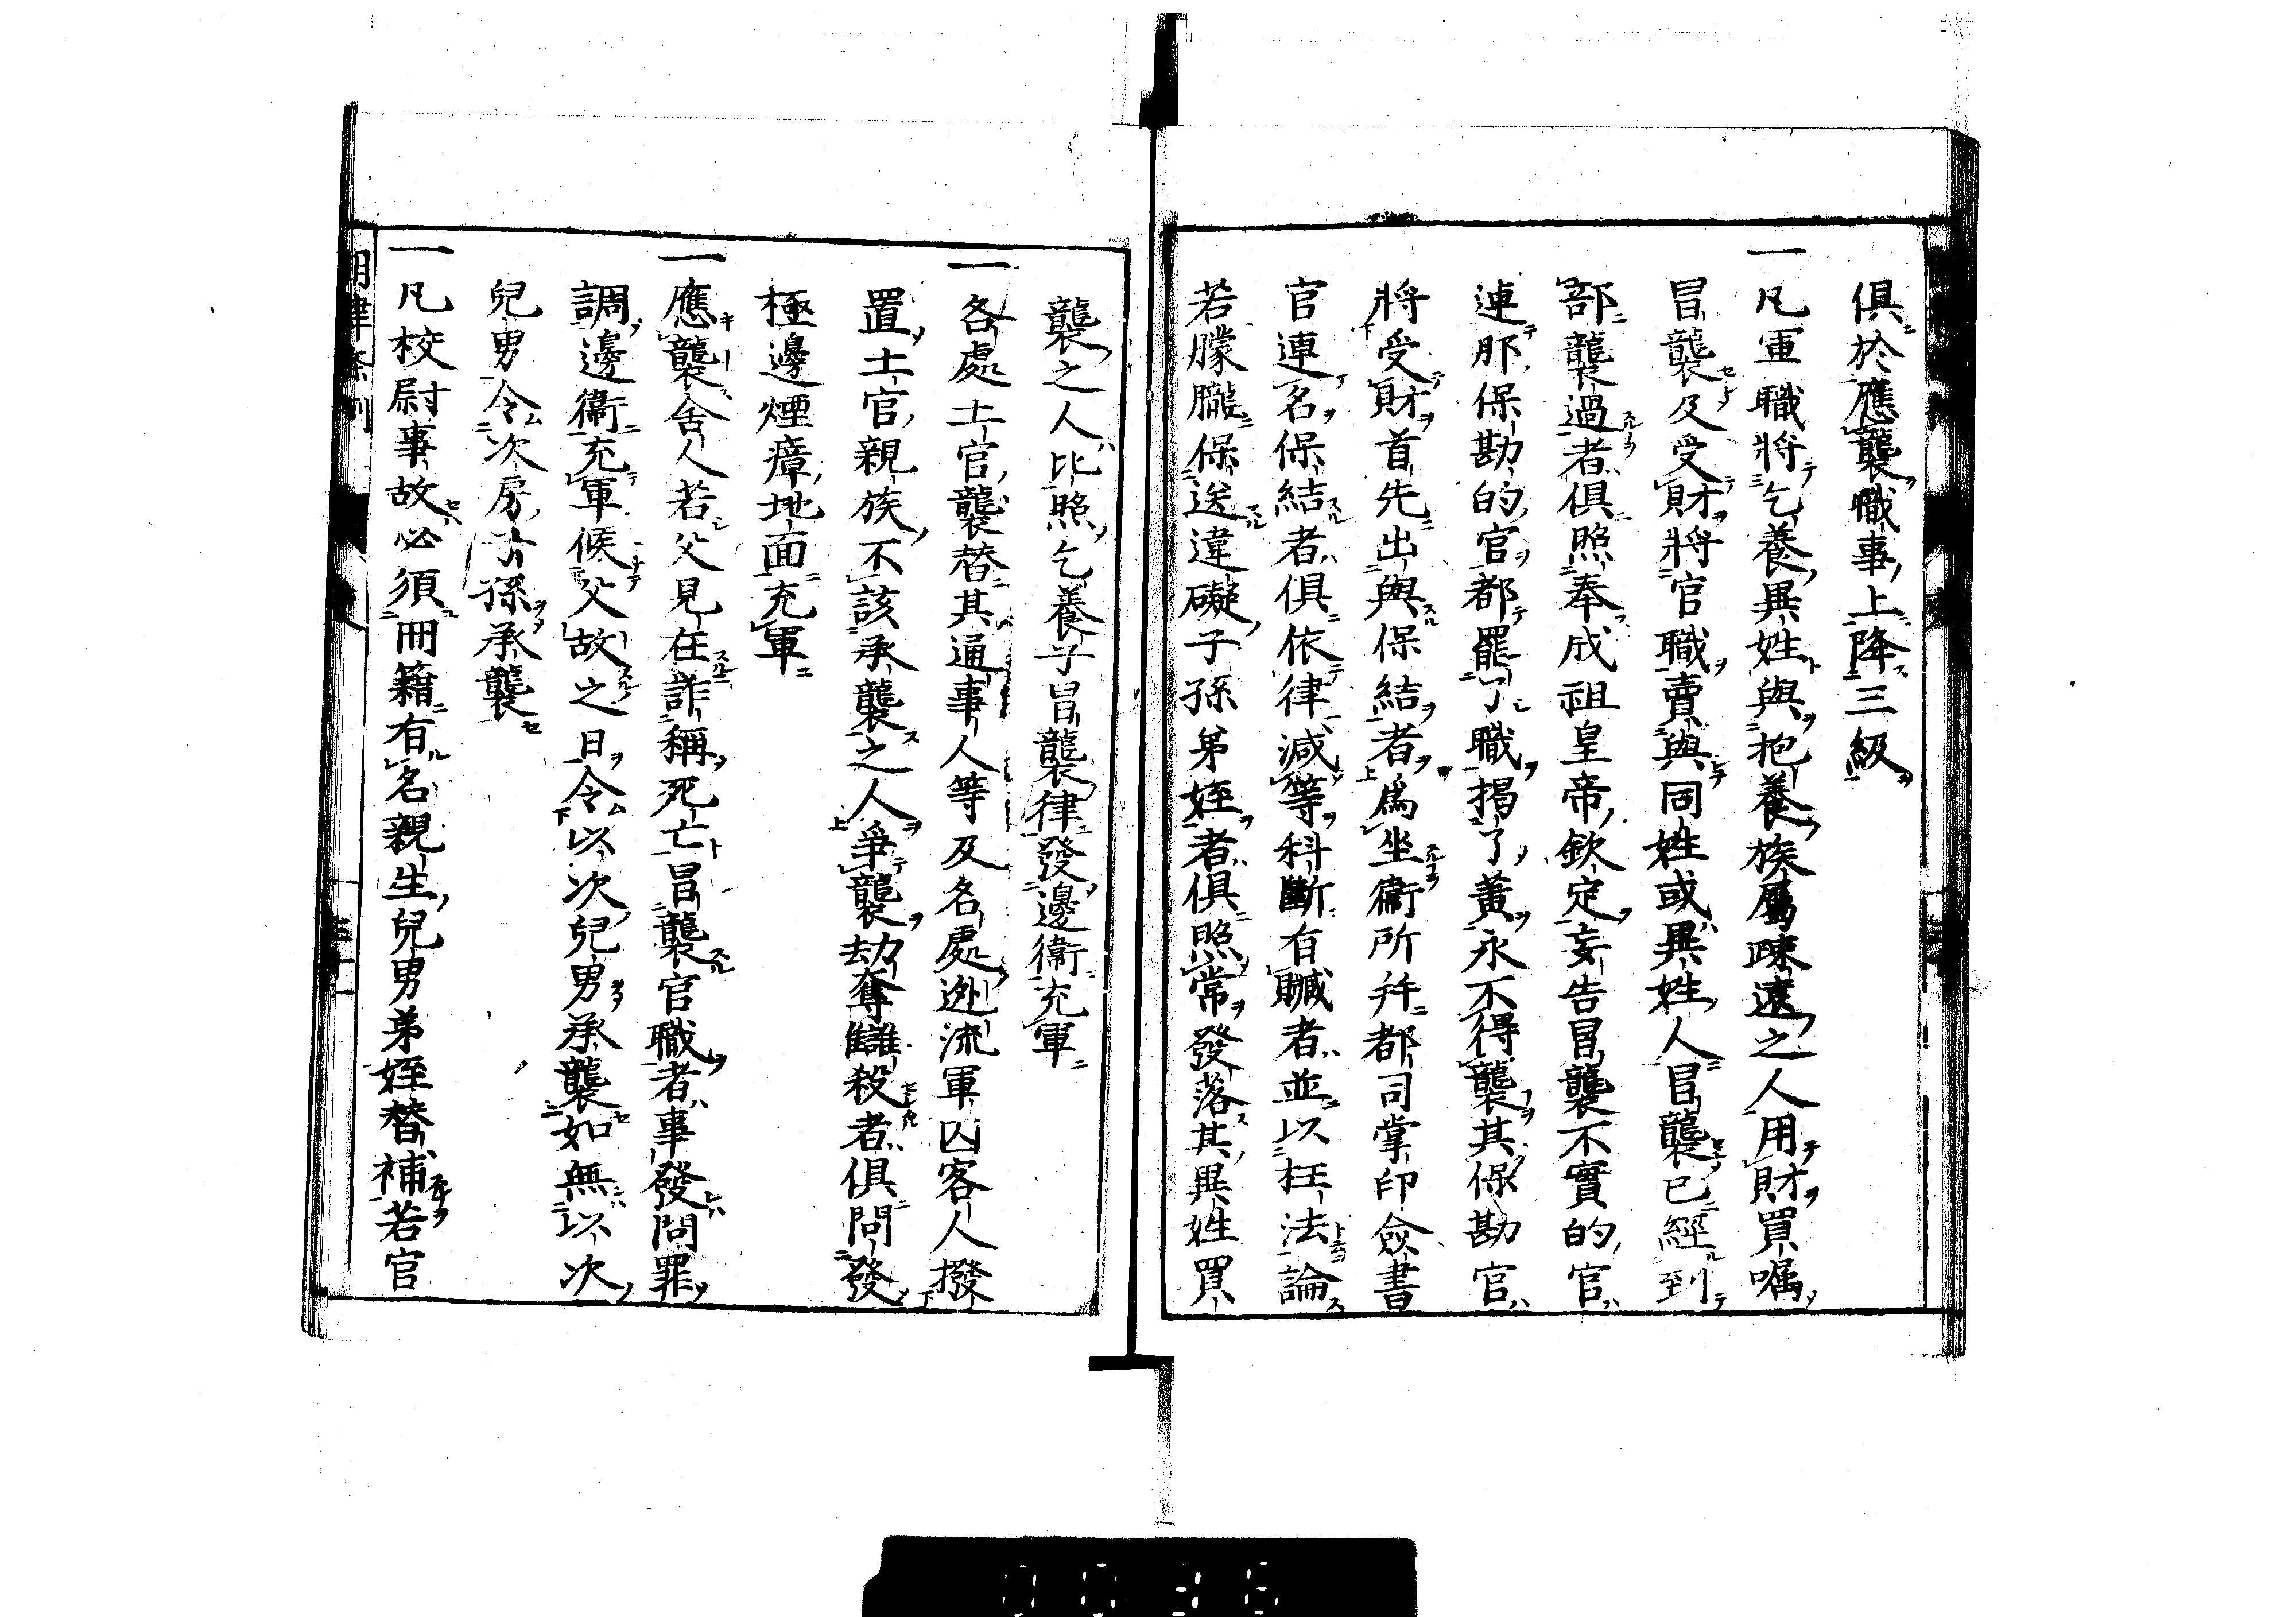 俱於應襲職事上降三級
一凡軍職將乞養異姓與抱養族屬疎遠之人用財買嘱
冒襲及受財將官職賣與同姓或異姓人冒襲已經到
部襲過者俱照奉成祖皇帝欽定妄告冒襲不實的官
連那保勘的官都罷了職揭了黃永不得襲其保勘官
將受財首先出與保結者爲坐衞所幷都司掌印僉書
官連名保結者俱依律減等科斷有贓者並以枉法論
若朦朧保送違礙子孫弟姪者俱照常發落其異姓買
襲之人比照乞養子冒襲律發邊衞充軍
一各處土官襲替其通事人等及各處逃流軍囚客人撥
置土官親族不該承襲之人爭襲劫奪讎殺者俱問發
極邊煙瘴地面充軍
一應襲舍人若父見在詐稱死亡冒襲官職者事發問罪
調邊衞充軍候父故之日令以次兒男承襲如無以次
兒男令次房子孫承襲
一凡校尉事故必須冊籍有名親生兒男弟姪替補若官
明律條例